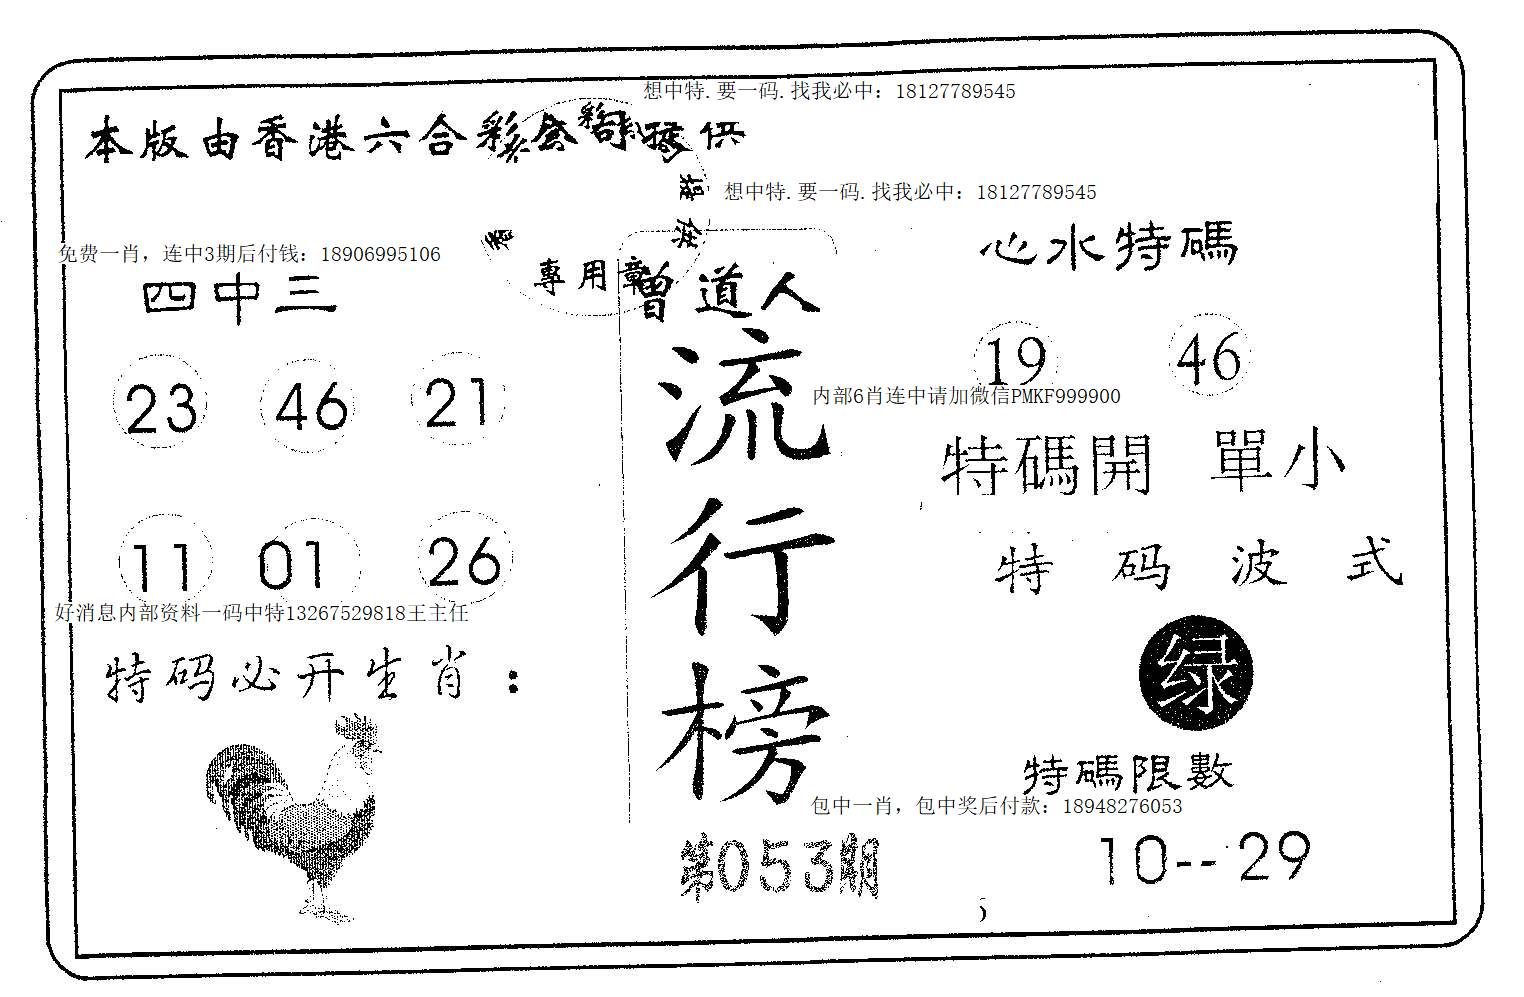 想中特.要一码.找我必中：18127789545
本版由香港六合彩公司提供
想中特.要一码.找我必中：18127789545
提供
香
專用章
免费一肖，连中3期后付钱：18906995106
四中三
23 46 21
11 01 26
好消息内部资料一码中特13267529818王主任
特码必开生肖：
曾道人
流行榜
第053期
心水特碼
19 46
内部6肖连中请加微信PMKF999900
特碼開 單小
特码波式
绿
特碼限數
包中一肖，包中奖后付款：18948276053
10--29